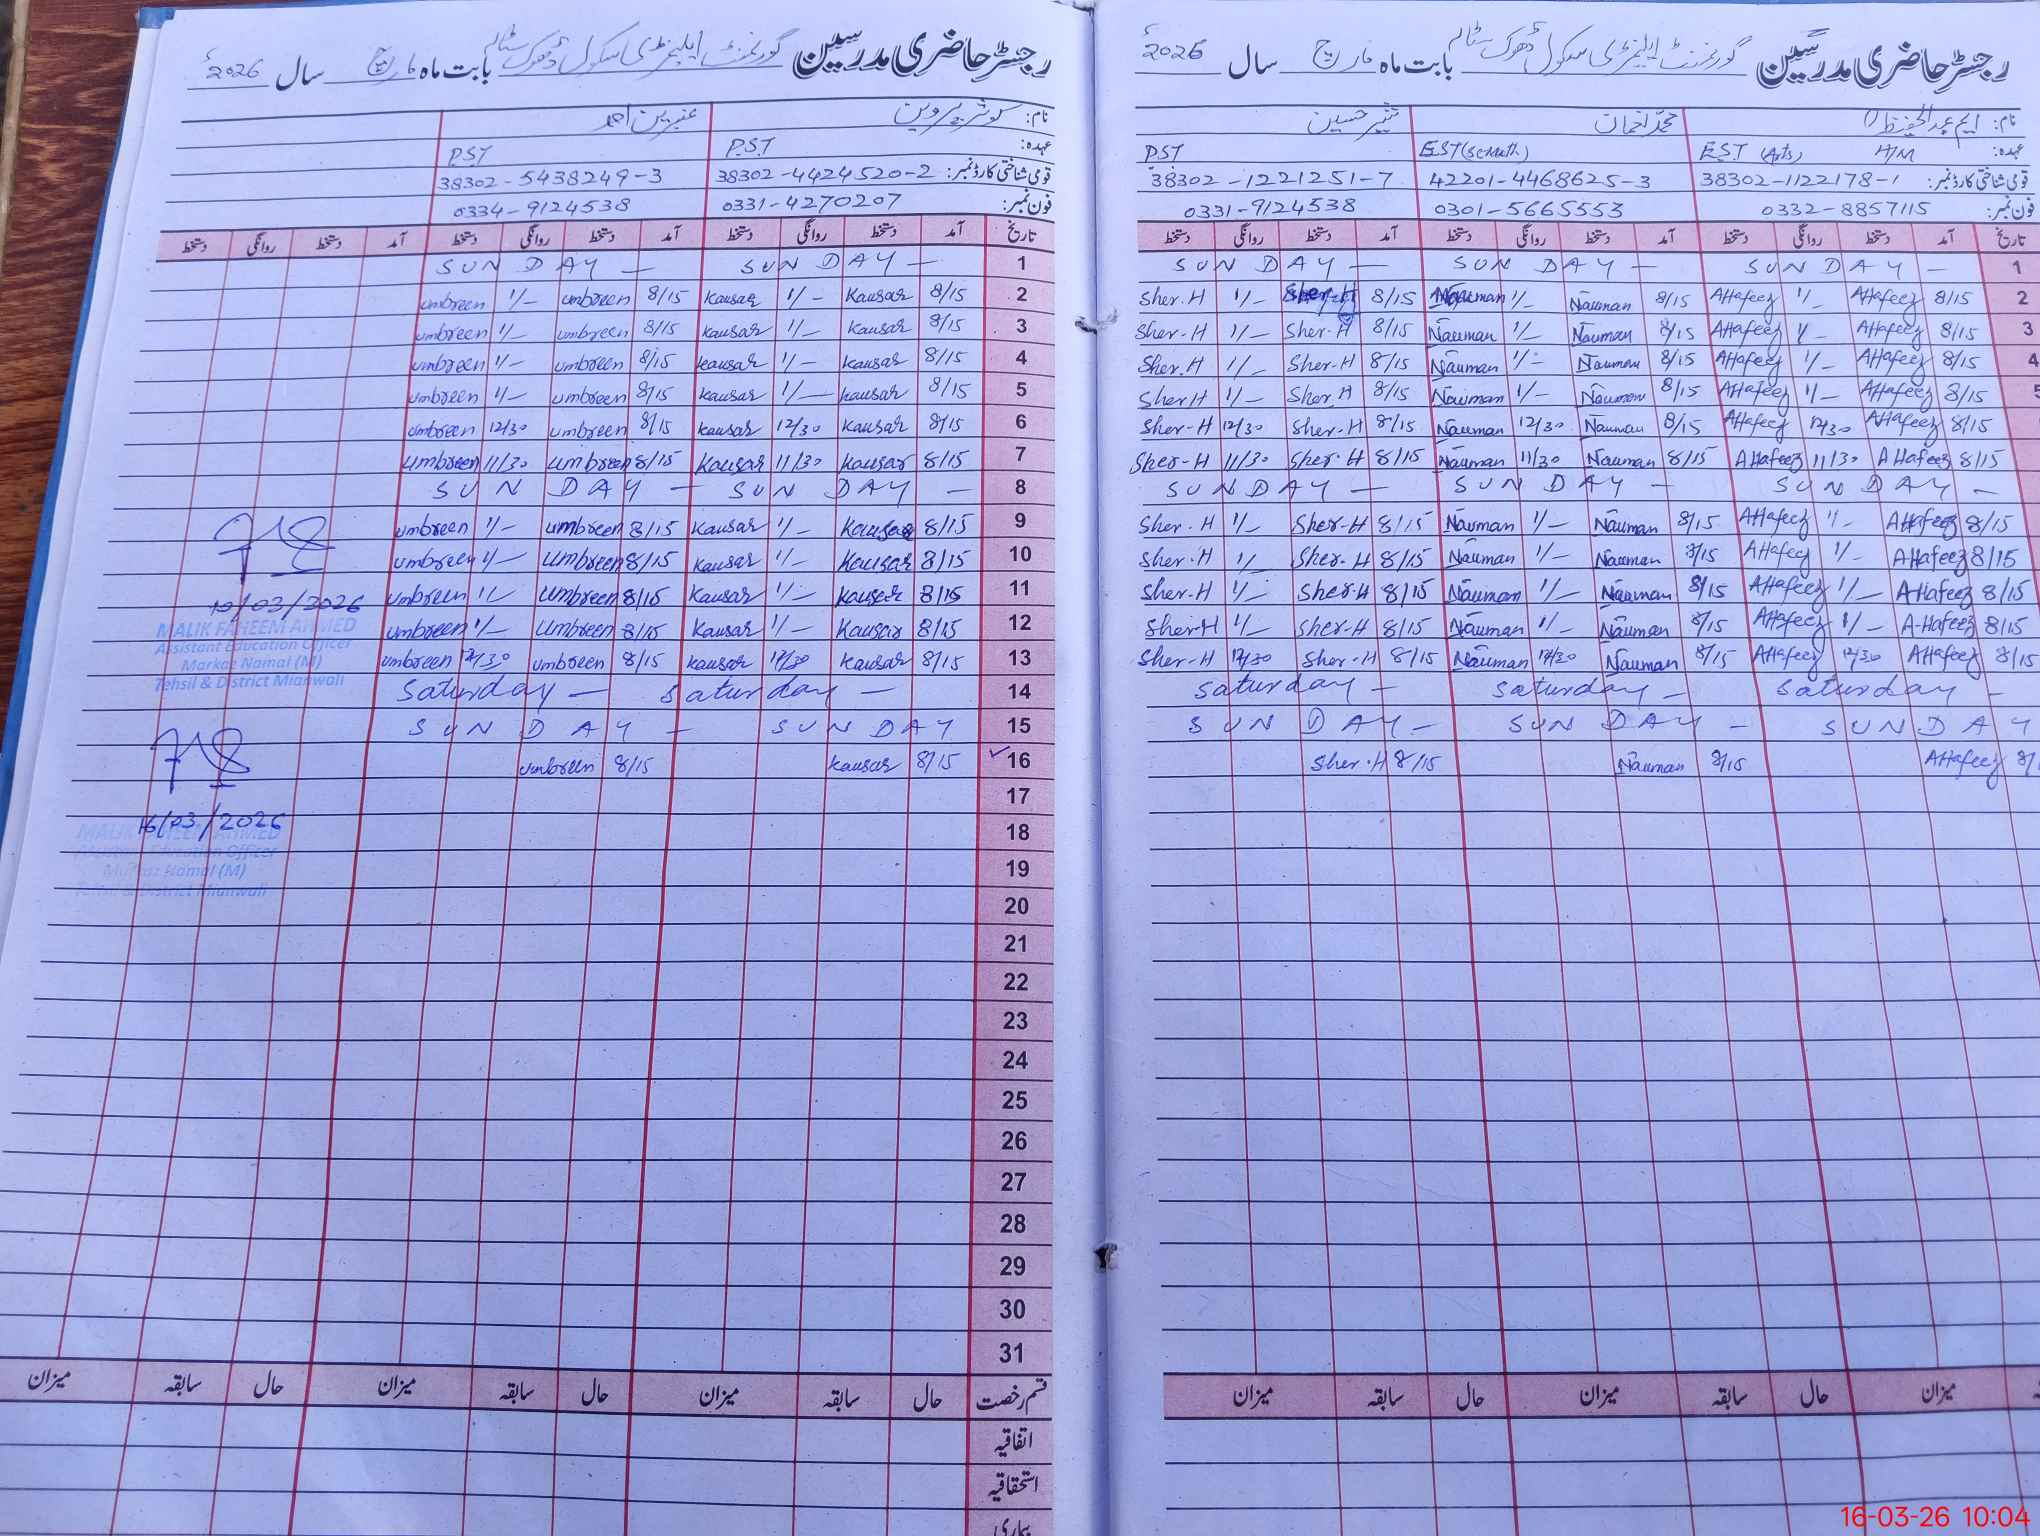 رجسٹر حاضری مدرسین گورنمنٹ ایلیمنٹری سکول ڈھوک ستالہ بابت ماہ مارچ سال 2026ء
نام: کوثر پروین عنبرین احمد
عہدہ: P.S.T P.S.T
قومی شناختی کارڈ نمبر: 38302-4424520-2 38302-5438249-3
فون نمبر: 0331-4270207 0334-9124538
تاریخ آمد دستخط روانگی دستخط آمد دستخط روانگی دستخط آمد دستخط روانگی دستخط
SUN DAY — SUN DAY — 1
umbreen 1/- umbreen 8/15 Kausar 1/- Kausar 8/15 2
umbreen 1/- umbreen 8/15 Kausar 1/- Kausar 8/15 3
umbreen 1/- umbreen 8/15 Kausar 1/- Kausar 8/15 4
umbreen 1/- umbreen 8/15 Kausar 1/- Kausar 8/15 5
umbreen 12/30 umbreen 8/15 Kausar 12/30 Kausar 8/15 6
umbreen 11/30 umbreen 8/15 Kausar 11/30 Kausar 8/15 7
SUN DAY — SUN DAY — 8
umbreen 1/- umbreen 8/15 Kausar 1/- Kausar 8/15 9
umbreen 1/- umbreen 8/15 Kausar 1/- Kausar 8/15 10
umbreen 1/- umbreen 8/15 Kausar 1/- Kausar 8/15 11
umbreen 1/- umbreen 8/15 Kausar 1/- Kausar 8/15 12
umbreen 12/30 umbreen 8/15 Kausar 12/30 Kausar 8/15 13
Saturday — Saturday — 14
SUN DAY — SUN DAY 15
umbreen 8/15 Kausar 8/15 ✓16
17
18
19
20
21
22
23
24
25
26
27
28
29
30
31
قسم رخصت حال سابقہ میزان حال سابقہ میزان حال سابقہ میزان
اتفاقیہ
استحقاقیہ
بیماری
10/03/2026
MALIK FAHEEM AHMED
Assistant Education Officer
Markaz Namal (M)
Tehsil & District Mianwali
16/03/2026
MALIK FAHEEM AHMED
Assistant Education Officer
Markaz Namal (M)
Tehsil & District Mianwali
رجسٹر حاضری مدرسین گورنمنٹ ایلیمنٹری سکول ڈھوک ستالہ بابت ماہ مارچ سال 2026ء
نام: ایم عبدالحفیظ محمد نعمان حسین
عہدہ: EST (Arts) H/M EST (Sc-Math) PST
قومی شناختی کارڈ نمبر: 38302-1122178-1 42201-4468625-3 38302-1221251-7
فون نمبر: 0332-8857115 0301-5665553 0331-9124538
تاریخ آمد دستخط روانگی دستخط آمد دستخط روانگی دستخط آمد دستخط روانگی دستخط
SUN DAY — SUN DAY — SUN DAY — 1
Sher.H 1/- Sher.H 8/15 Nauman 1/- Nauman 8/15 AHafeez 1/- AHafeez 8/15 2
Sher-H 1/- Sher-H 8/15 Nauman 1/- Nauman 8/15 AHafeez 1/- AHafeez 8/15 3
Sher.H 1/- Sher-H 8/15 Nauman 1/- Nauman 8/15 AHafeez 1/- AHafeez 8/15 4
Sher H 1/- Sher.H 8/15 Nauman 1/- Nauman 8/15 AHafeez 1/- AHafeez 8/15 5
Sher-H 12/30 Sher-H 8/15 Nauman 12/30 Nauman 8/15 AHafeez 12/30 AHafeez 8/15 6
Sher-H 11/30 Sher-H 8/15 Nauman 11/30 Nauman 8/15 AHafeez 11/30 AHafeez 8/15 7
SUN DAY — SUN DAY — SUN DAY — 8
Sher.H 1/- Sher-H 8/15 Nauman 1/- Nauman 8/15 AHafeez 1/- AHafeez 8/15
Sher.H 1/- Sher-H 8/15 Nauman 1/- Nauman 8/15 AHafeez 1/- AHafeez 8/15
Sher.H 1/- Sher-H 8/15 Nauman 1/- Nauman 8/15 AHafeez 1/- A-Hafeez 8/15
Sher-H 1/- Sher-H 8/15 Nauman 1/- Nauman 8/15 AHafeez 1/- A-Hafeez 8/15
Sher-H 12/30 Sher-H 8/15 Nauman 12/30 Nauman 8/15 AHafeez 12/30 AHafeez 8/15
Saturday — Saturday — Saturday —
SUN DAY — SUN DAY — SUN DAY
Sher.H 8/15 Nauman 8/15 AHafeez 8/1
حال سابقہ میزان حال سابقہ میزان سابقہ میزان
16-03-26 10:04